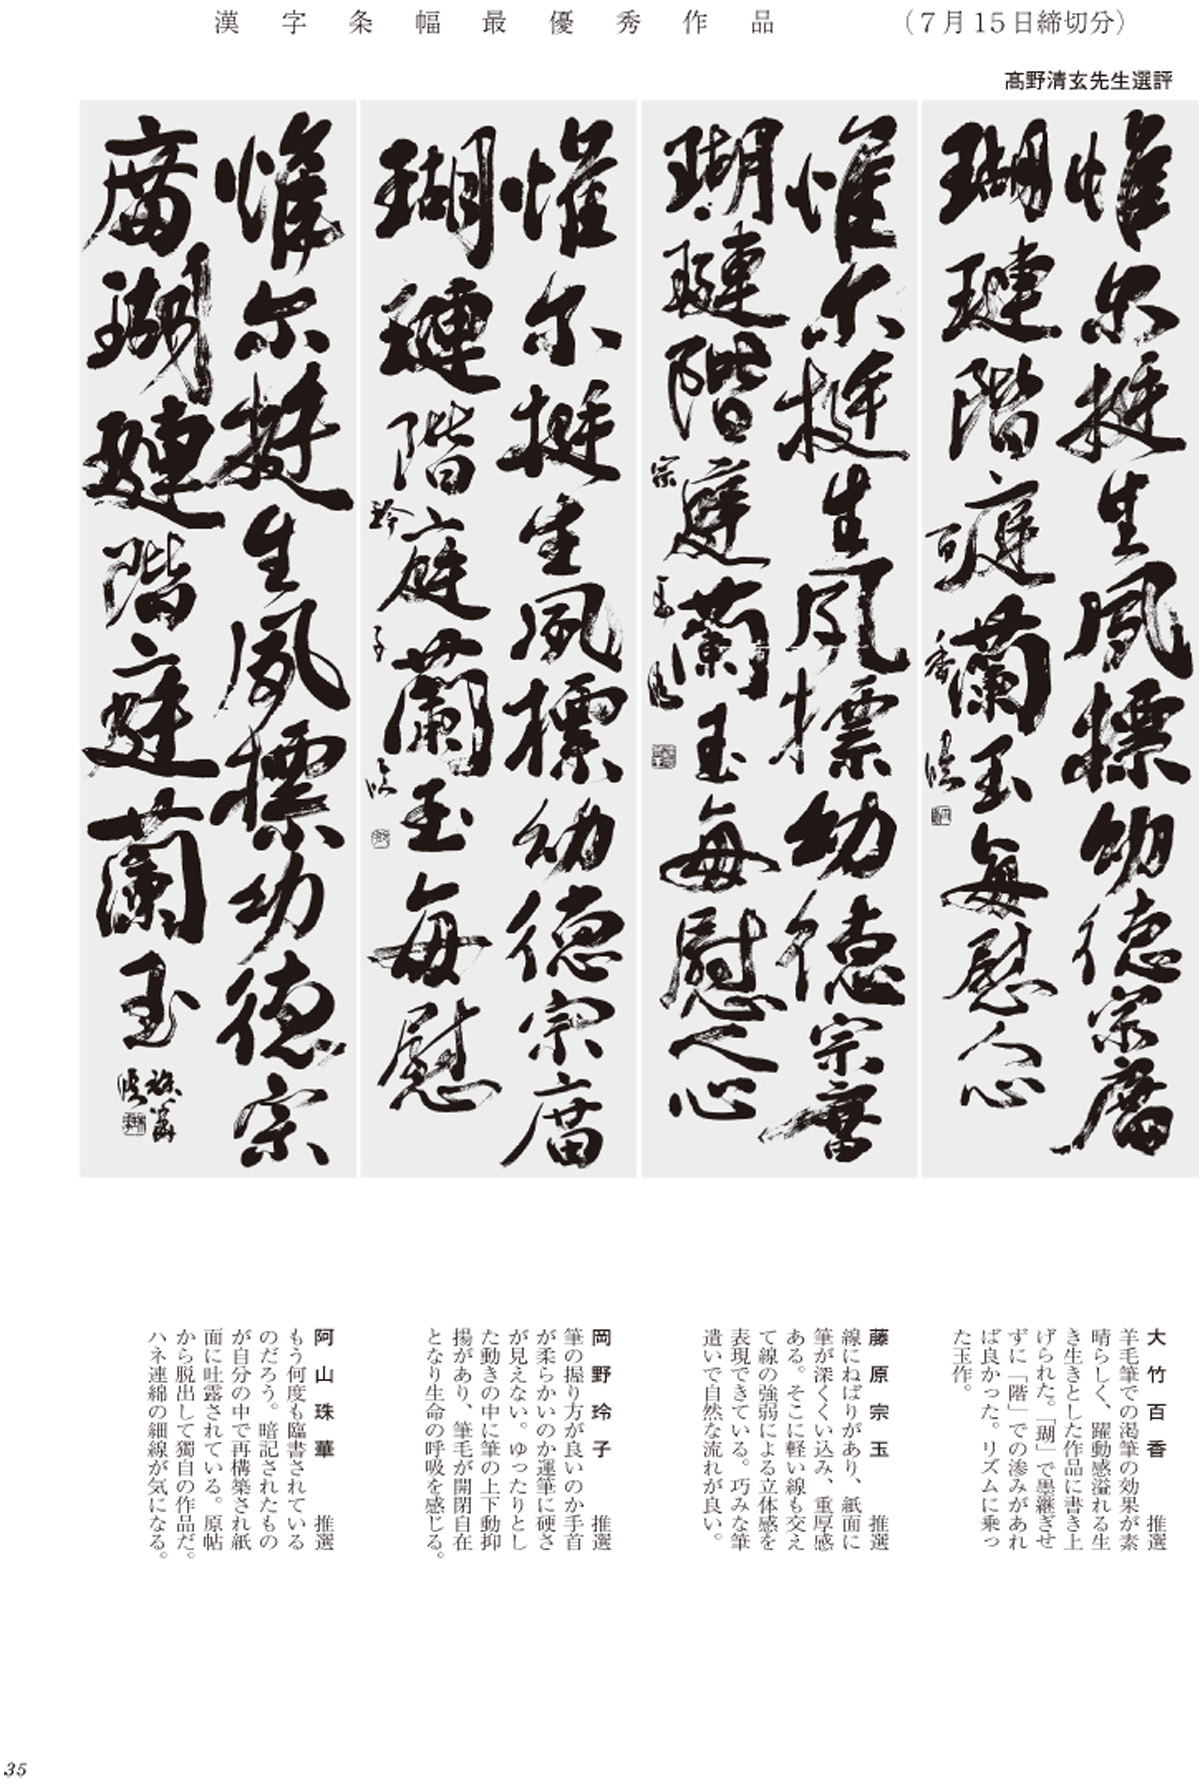 漢字条幅最優秀作品　（7月15日締切分）
髙野清玄先生選評
惟尓挺生夙標幼徳宗廟
瑚璉階庭蘭玉毎慰人心
百香臨
惟尓挺生夙標幼徳宗廟
瑚璉階庭蘭玉毎慰人心
宗玉臨
惟尓挺生夙標幼徳宗廟
瑚璉階庭蘭玉毎慰
玲子臨
惟尓挺生夙標幼徳宗
廟瑚璉階庭蘭玉
珠華臨
大竹百香　推選
羊毛筆での渇筆の効果が素
晴らしく、躍動感溢れる生
き生きとした作品に書き上
げられた。「瑚」で墨継ぎせ
ずに「階」での滲みがあれ
ば良かった。リズムに乗っ
た玉作。
藤原宗玉　推選
線にねばりがあり、紙面に
筆が深くくい込み、重厚感
ある。そこに軽い線も交え
て線の強弱による立体感を
表現できている。巧みな筆
遣いで自然な流れが良い。
岡野玲子　推選
筆の握り方が良いのか手首
が柔らかいのか運筆に硬さ
が見えない。ゆったりとし
た動きの中に筆の上下動抑
揚があり、筆毛が開閉自在
となり生命の呼吸を感じる。
阿山珠華　推選
もう何度も臨書されている
のだろう。暗記されたもの
が自分の中で再構築され紙
面に吐露されている。原帖
から脱出して獨自の作品だ。
ハネ連綿の細線が気になる。
35